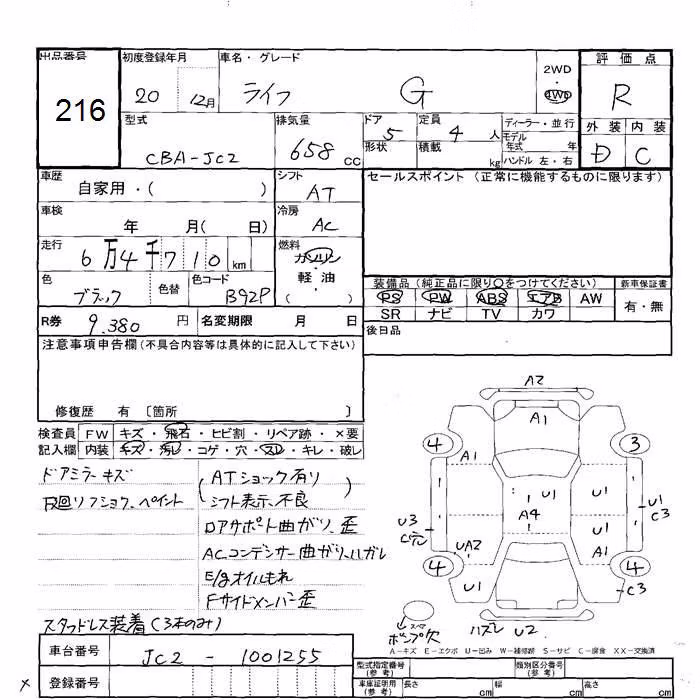 出品番号
216
初度登録年月
20 12月
車名・グレード
ライフ G
2WD
4WD
評価点
R
外装 内装
D C
型式
CBA-JC2
排気量
658 cc
ドア
5
形状
定員
4 人
積載
kg
ディーラー・並行
モデル
年式 年
ハンドル 左・右
車歴
自家用・( )
シフト
AT
セールスポイント (正常に機能するものに限ります)
車検
年 月( 日)
冷房
AC
走行
6万4千710 km
燃料
ガソリン
軽・油
( )
色
ブラック
色替
色コード
B92P
装備品 (純正品に限り○をつけてください)
新車保証書
PS PW ABS エアB AW
有・無
SR ナビ TV カワ
R券 9,380 円
名変期限 月 日
後日品
注意事項申告欄 (不具合内容等は具体的に記入して下さい)
修復歴 有 〔箇所 〕
検査員 FW キズ・飛石・ヒビ割・リペア跡・×要
記入欄 内装 キズ・汚レ・コゲ・穴・スレ・キレ・破レ
ドアミラーキズ
ATショック有り
シフト表示不良
ロアサポート曲ガリ、歪
ACコンデンサー曲ガリ、ハガレ
E/gオイルもれ
Fサイドメンバー歪
スタッドレス装着(3本のみ)
A2
A1
4
3
A1
U1
U1
A4
U1
C3
U3
UA2
U1
A1
4
4
U1
U1
C3
ハズレ U2
A－キズ E－エクボ U－凹み W－補修跡 S－サビ C－腐食 XX－交換済
車台番号 JC2 - 1001255
登録番号
型式指定番号
(参考)
類別区分番号
(参考)
車庫証明用
(参考)
長さ cm
幅 cm
高さ cm